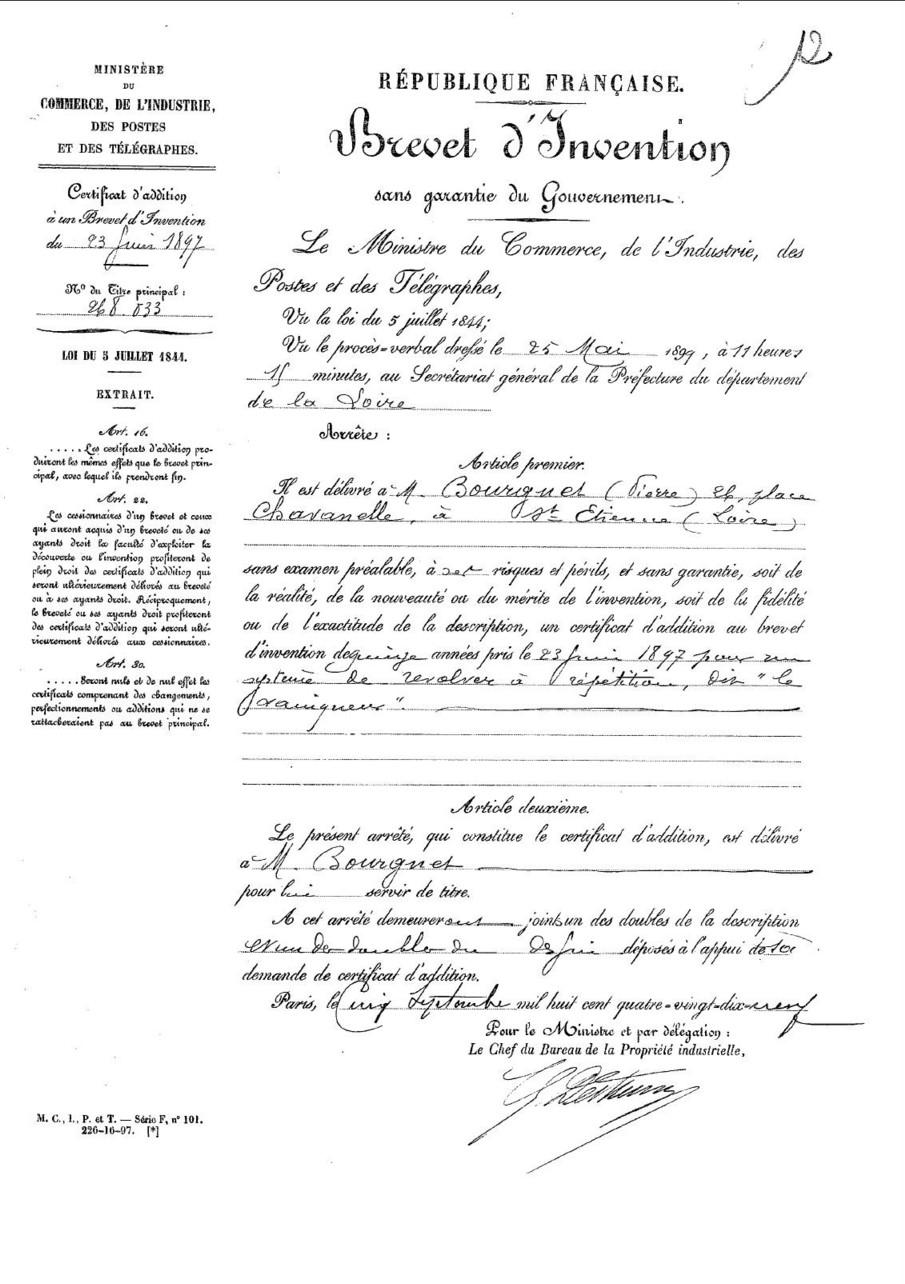 MINISTÈRE
DU
COMMERCE, DE L'INDUSTRIE,
DES POSTES
ET DES TÉLÉGRAPHES.
Certificat d'addition
à un Brevet d'Invention
du 23 Juin 1897
N° du Titre principal :
268.033
LOI DU 5 JUILLET 1844.
EXTRAIT.
Art. 16.
..... Les certificats d'addition pro-
duiront les mêmes effets que le brevet prin-
cipal, avec lequel ils prendront fin.
Art. 22.
Les cessionnaires d'un brevet et ceux
qui auront acquis d'un breveté ou de ses
ayants droit la faculté d'exploiter la
découverte ou l'invention profiteront de
plein droit des certificats d'addition qui
seront ultérieurement délivrés au breveté
ou à ses ayants droit. Réciproquement,
le breveté ou ses ayants droit profiteront
des certificats d'addition qui seront ulté-
rieurement délivrés aux cessionnaires.
Art. 30.
..... Seront nuls et de nul effet les
certificats comprenant des changements,
perfectionnements ou additions qui ne se
rattacheraient pas au brevet principal.
M. C., I., P. et T. — Série F, n° 101.
226-16-97. [*]
RÉPUBLIQUE FRANÇAISE.
Brevet d'Invention
sans garantie du Gouvernement.
Le Ministre du Commerce, de l'Industrie, des
Postes et des Télégraphes,
Vu la loi du 5 juillet 1844;
Vu le procès-verbal dressé le 25 Mai 1899, à 11 heures
15 minutes, au Secrétariat général de la Préfecture du département
de la Loire
Arrête :
Article premier.
Il est délivré à M. Bourgnet (Pierre) 26, place
Chavanelle, à St Etienne (Loire)
sans examen préalable, à ses risques et périls, et sans garantie, soit de
la réalité, de la nouveauté ou du mérite de l'invention, soit de la fidélité
ou de l'exactitude de la description, un certificat d'addition au brevet
d'invention de quinze années pris le 23 Juin 1897 pour un
système de revolver à répétition, dit "le
vainqueur".
Article deuxième.
Le présent arrêté, qui constitue le certificat d'addition, est délivré
à M. Bourgnet
pour lui servir de titre.
A cet arrêté demeureront joints un des doubles de la description
et un des doubles du dessin déposés à l'appui de la
demande de certificat d'addition.
Paris, le cinq Septembre mil huit cent quatre-vingt-dix-neuf
Pour le Ministre et par délégation :
Le Chef du Bureau de la Propriété industrielle,